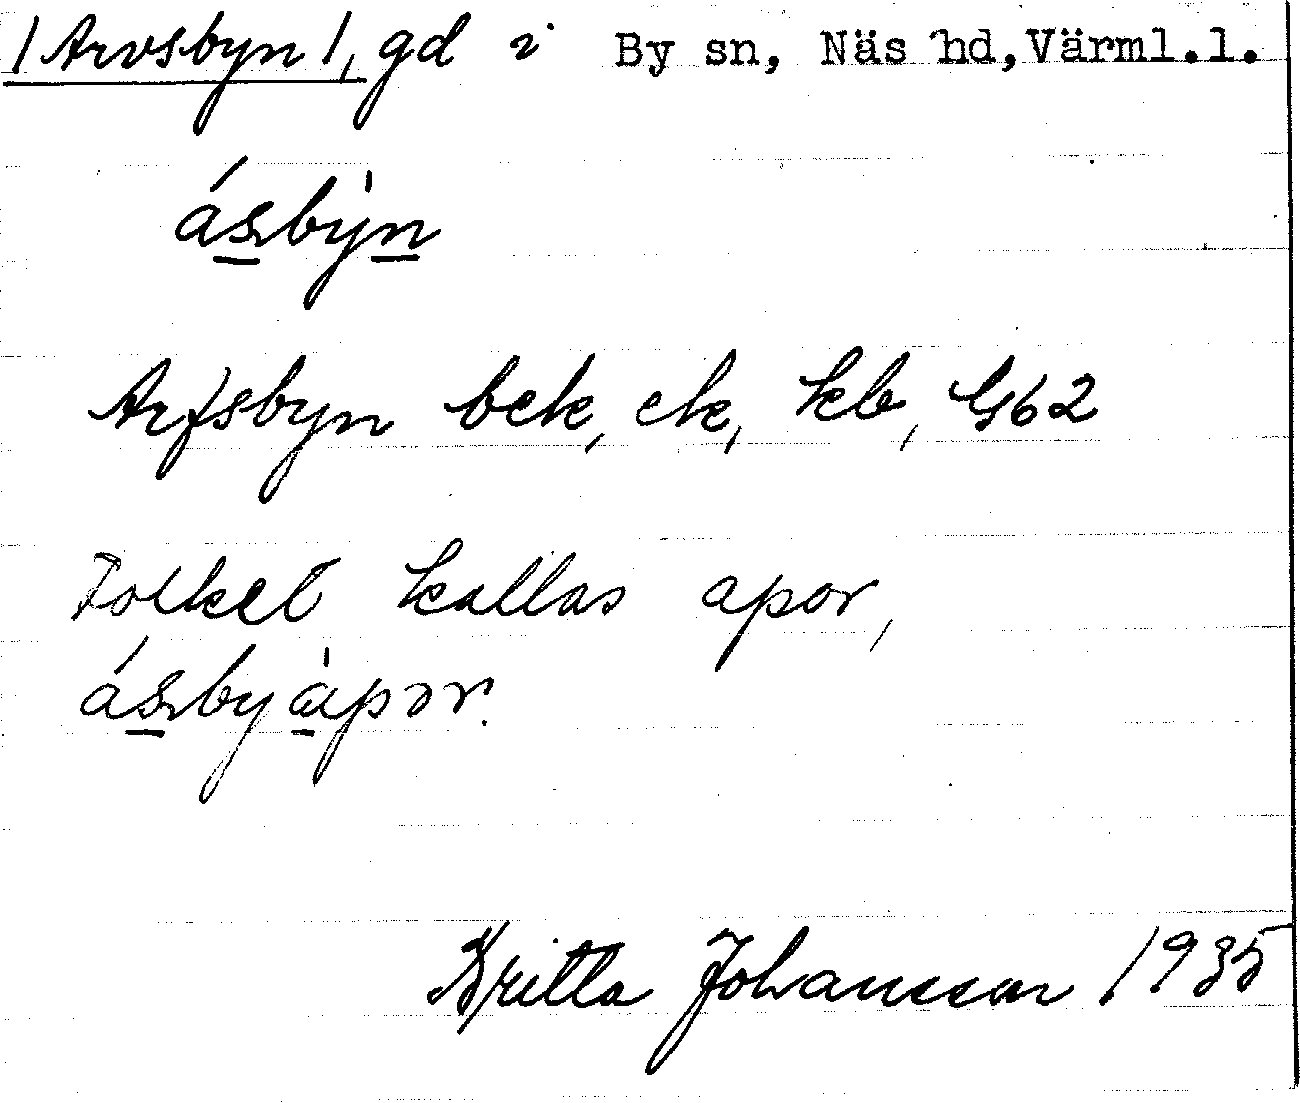 /Arvsbyn/, gd i By sn, Näs hd, Värml.l.
ásbyn
Arfsbyn bek, ek, kb, G62
Folket kallas apor,
ásbyàpor.
Britta Johansson 1935